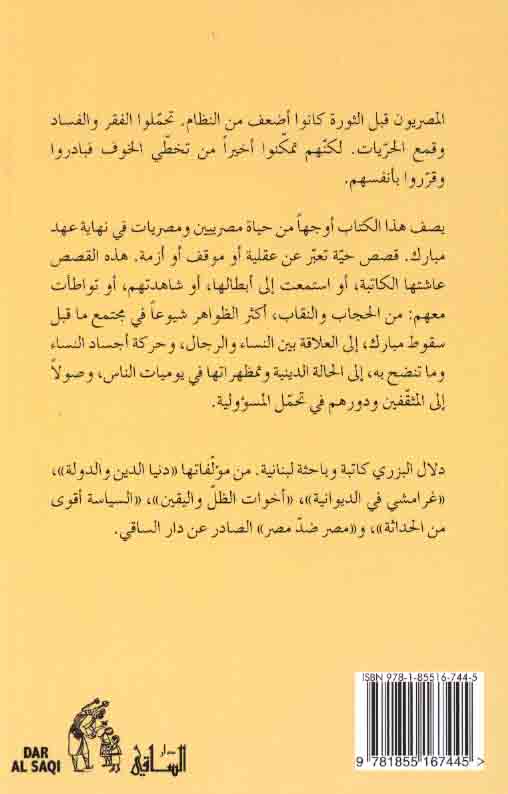 المصريون قبل الثورة كانوا أضعف من النظام. تحمّلوا الفقر والفساد
وقمع الحرّيات. لكنّهم تمكّنوا أخيراً من تخطّي الخوف فبادروا
وقرّروا بأنفسهم.
يصف هذا الكتاب أوجهاً من حياة مصريين ومصريات في نهاية عهد
مبارك. قصص حيّة تعبّر عن عقلية أو موقف أو أزمة. هذه القصص
عاشتها الكاتبة، أو استمعت إلى أبطالها، أو شاهدتهم، أو تواطأت
معهم: من الحجاب والنقاب، أكثر الظواهر شيوعاً في مجتمع ما قبل
سقوط مبارك، إلى العلاقة بين النساء والرجال، وحركة أجساد النساء
وما تنضح به، إلى الحالة الدينية وتمظهراتها في يوميات الناس، وصولاً
إلى المثقّفين ودورهم في تحمّل المسؤولية.
دلال البزري كاتبة وباحثة لبنانية. من مؤلّفاتها «دنيا الدين والدولة»،
«غرامشي في الديوانية»، «أخوات الظلّ واليقين»، «السياسة أقوى
من الحداثة»، و«مصر ضدّ مصر» الصادر عن دار الساقي.
ISBN 978-1-85516-744-5
9 781855 167445 >
DAR
AL SAQI
دار
الساقي